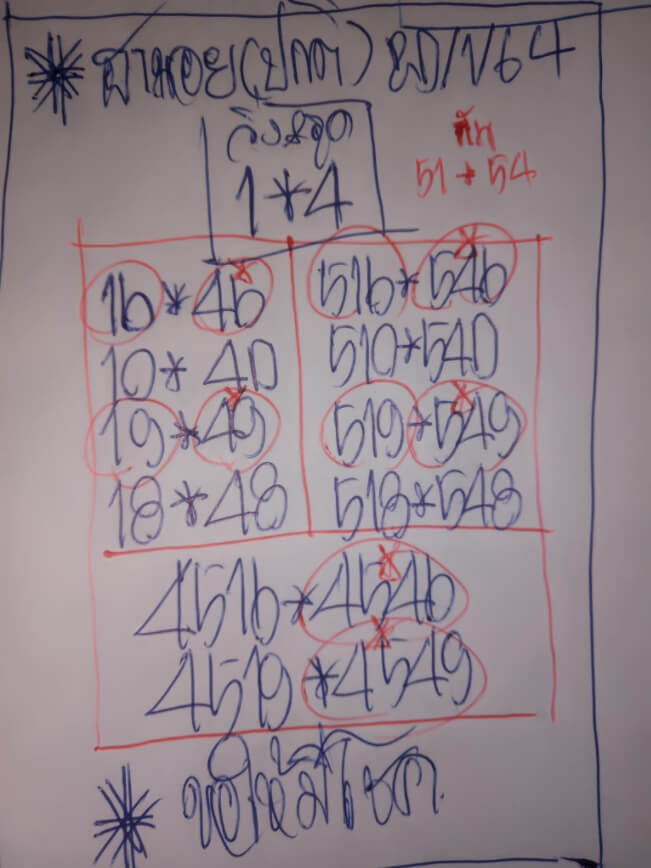 ฮานอย(ปกติ) 1/1/64
วิ่งสุด
1*4
51*54
16*46
10*40
19*49
18*48
516*546
510*540
519*549
518*548
4516*4546
4519*4549
ขอให้มีโชค